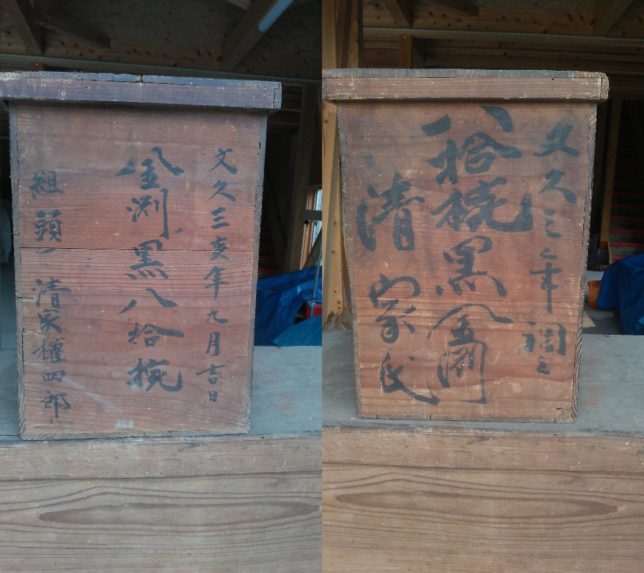 文久三亥年九月吉日
金渕黒八拾椀
組頭 清家権四郎
文久三年調之
拾椀黒金渕
清家氏